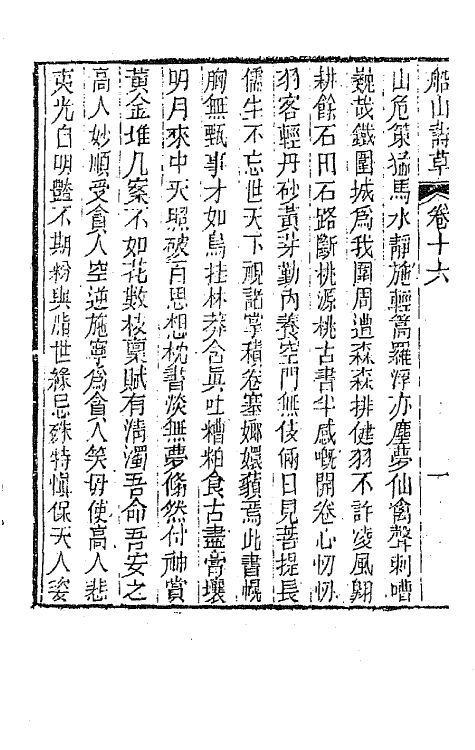 船山詩草 卷十六 一
山危策猛馬水靜施輕篙羅浮亦塵夢仙禽聲刺嘈
巍哉鐵圍城爲我圍周遭森森排健羽不許凌風翺
耕餘石田石路斷桃源桃古書半感嘅開卷心忉忉
羽客輕丹砂黃芽勤內養空門無伎倆日見菩提長
儒生不忘世天下視諸掌積卷塞嫏嬛藐焉此書幌
胸無甄事才如鳥挂林莽含眞吐糟粕食古盡膏壤
明月來中天照破百思想枕書淡無夢翛然付神賞
黃金堆几案不如花數枝稟賦有淸濁吾命吾安之
高人妙順受貪人空逆施寧爲貪人笑毋使高人悲
夷光自明艷不期粉與脂世緣忌殊特愼保天人姿